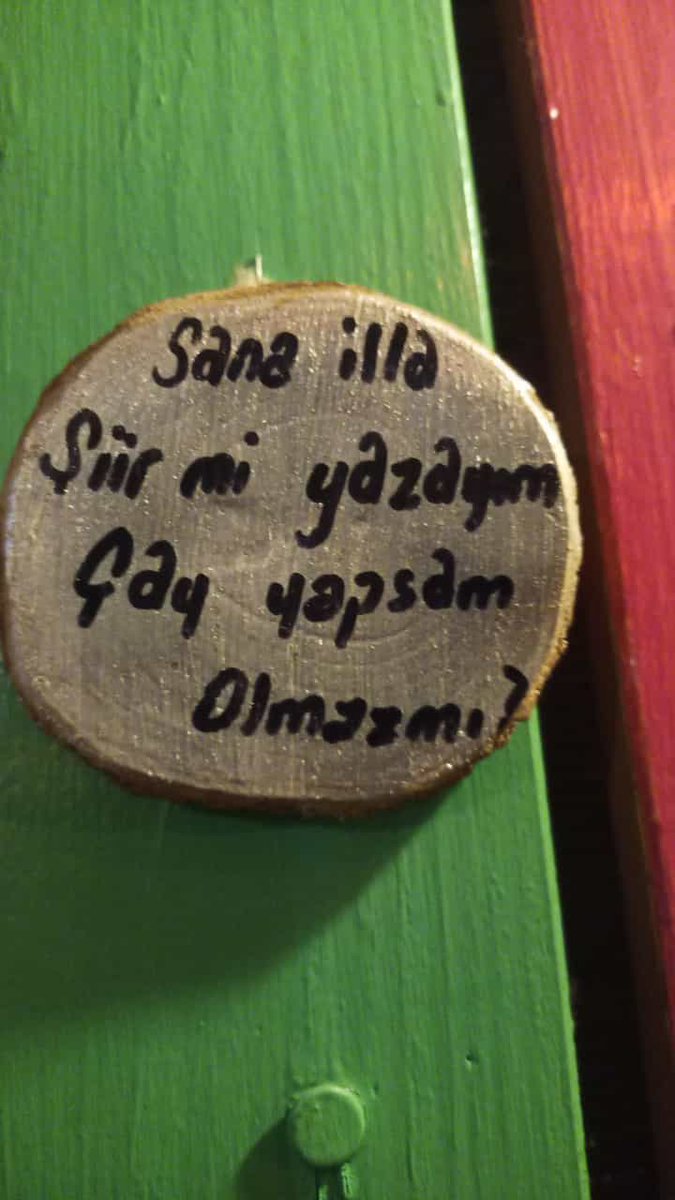 Sana illa
Şiir mi yazayım
Çay yapsam
Olmazmı?